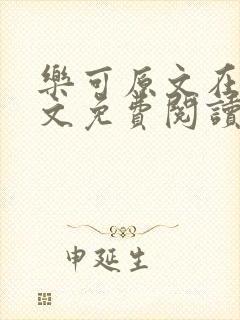 樂可原文在
文免費閱讀
申延生